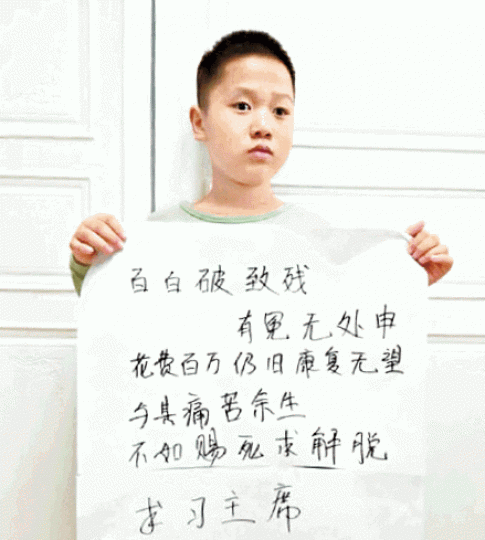 百白破致残
有冤无处申
花费百万仍旧康复无望
与其痛苦余生
不如赐死求解脱
求习主席